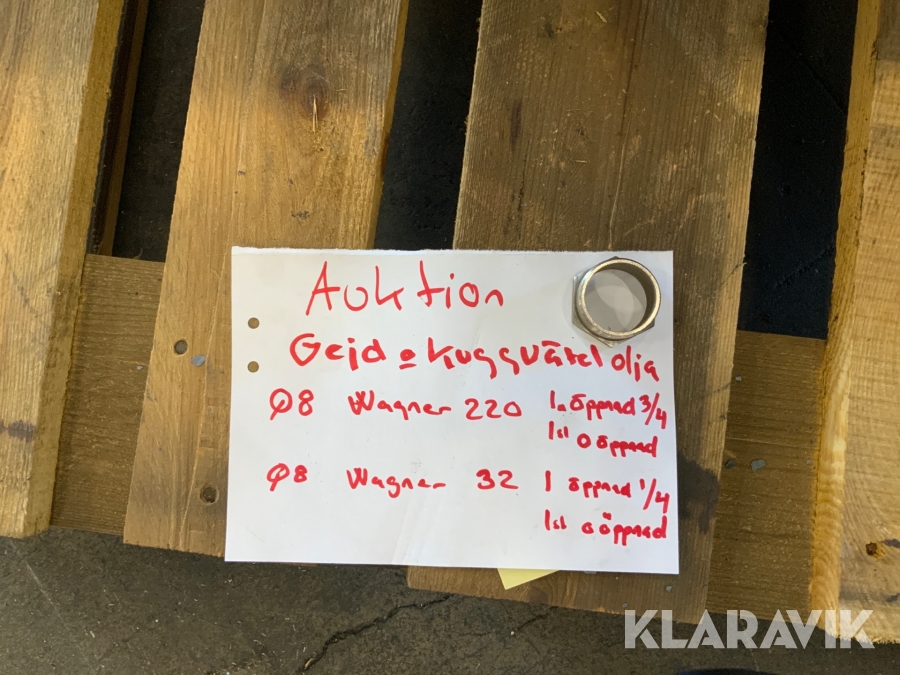 Auktion
Gejd o kuggväxel olja
Q8 Wagner 220 1 öppnad 3/4
1st oöppnad
Q8 Wagner 32 1 öppnad 1/4
1st oöppnad
KLARAVIK